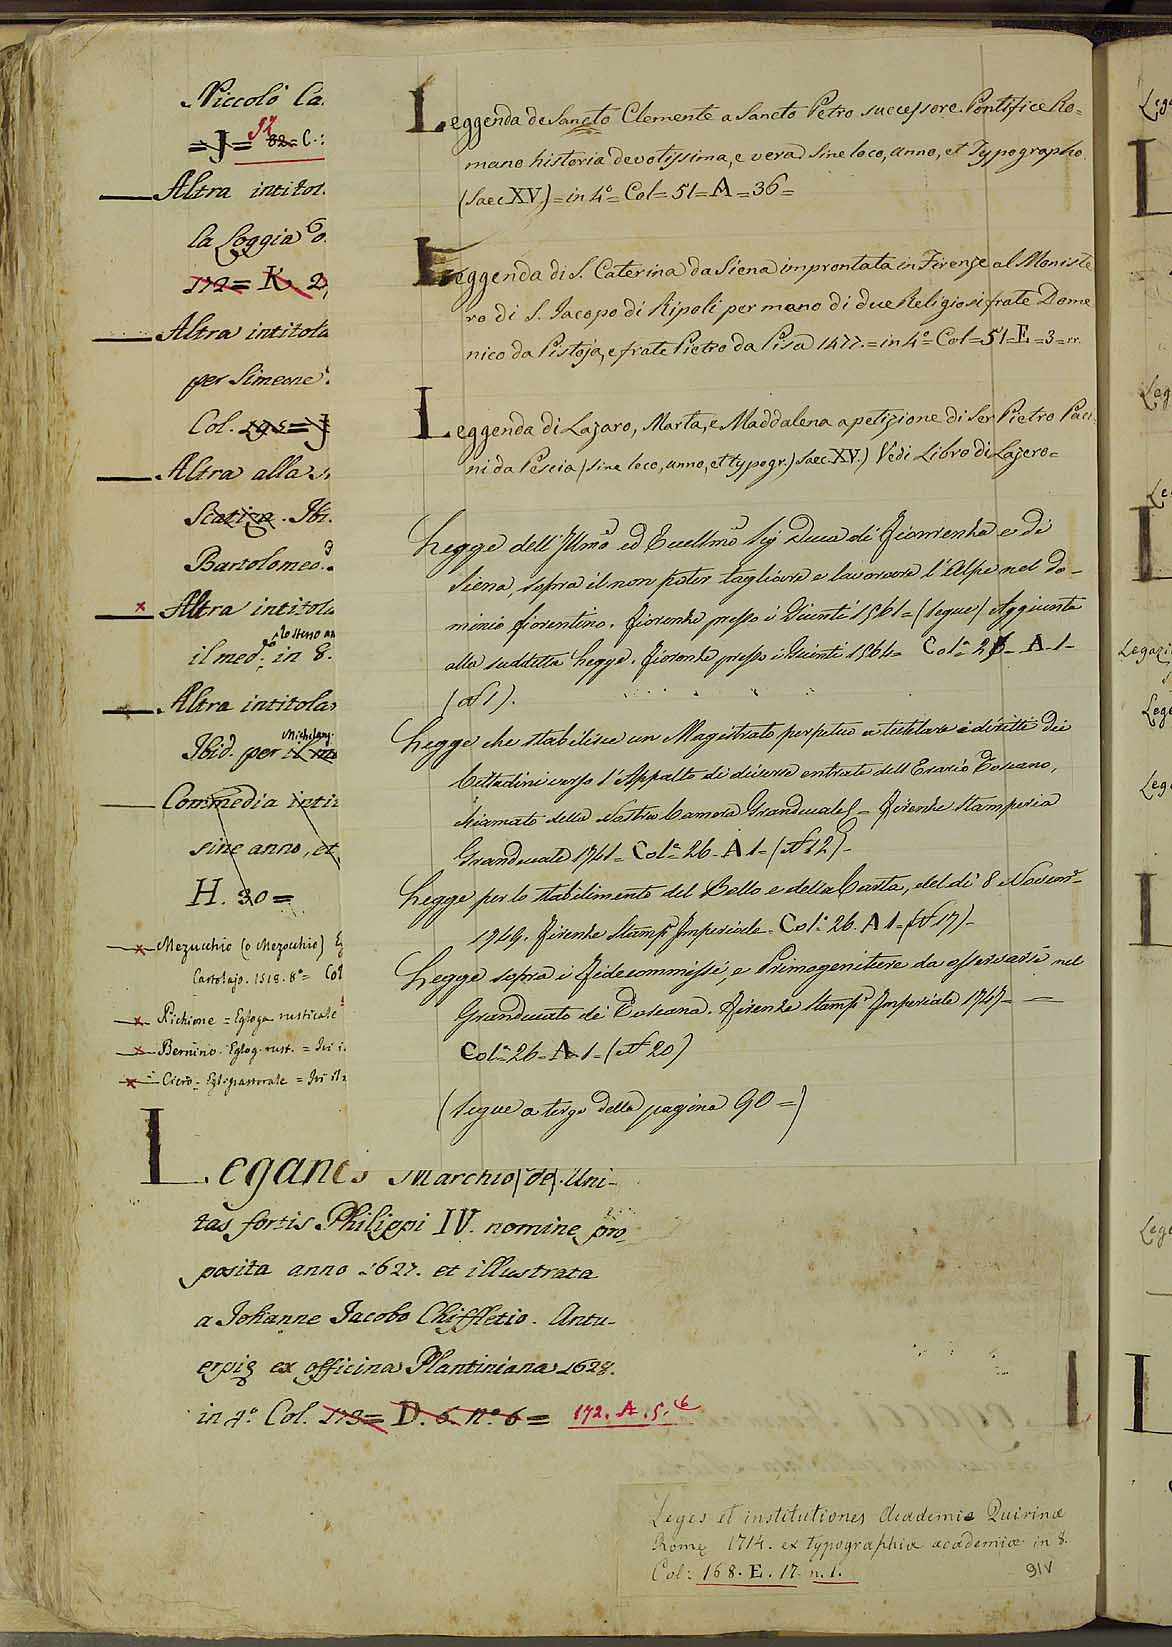 Niccolò Ca.
=J= 52 32= C.:
Altra intitol.
la Loggia o.
172= K. 2,
Altra intitola
per Simeone
Col. 195=J
Altra alla s
Scatiza. Ibi.
Bartolomeo.
Altra intitola
lo stesso an
il med.º in 8.
Altra intitola
Michelang.
Ibid. per il
Commedia intit
sine anno, et
H. 30=
Mezucchio (o Mezocchio) Eg
Cartolajo. 1518. 8º= Col
Richione = Egloga rusticale
Bernino. Eglog. rust. = Ivi i.
Cicro = Egl. pastorale = Ivi il
Leggenda de Sancto Clemente a Sancto Petro successore. Pontifice Ro=
mano historia devotissima, e vera sine loco, anno, et Typographo.
(Saec XV.)=in 4º= Col= 51= A= 36=
Leggenda di S. Caterina da Siena improntata in Firenze al Moniste
ro di S. Jacopo di Ripoli per mano di due Religiosi frate Dome
nico da Pistoja, e frate Pietro da Pisa 1477.=in 4º= Col=51=E=3=
Leggenda di Lazaro, Marta, e Maddalena a petizione di Ser Pietro Paci
ni da Pescia (sine loco, anno, et typogr.) Saec. XV.) Vedi Libro di Lazero=
Legge dell'Illmo ed Eccellmo Sig Duca di Fiorenza e di
Siena, sopra il non poter tagliare e lavorare l'Alpe nel do-
minio fiorentino. Fiorenza presso i Giunti 1561=(segue) Aggiunta
alla suddetta Legge. Fiorenza presso i Giunti 1564= Colª 26- A-1-
(Nº1).
Legge che stabilisce un Magistrato perpetuo a tutelare i diritti dei
Cittadini verso l'Appalto di diverse entrate dell'Erario Toscano,
chiamato della Nostra Camera Granducale)= Firenze Stamperia
Granducale 1741= Colª 26- A 1-(Nº12)-
Legge per lo stabilimento del Bollo e della Carta, del dì 8 Novemb.
1749. Firenze Stampª Imperiale- Colª 26. A 1-(Nº17)-
Legge sopra i Fidecommissi, e Primogeniture da osservarsi nel
Granducato di Toscana. Firenze Stampª Imperiale 1747-
Colª 26- A-1-(Nº20)
(Segue a tergo della pagina 90=)
Leganes Marchio (de). Uni-
tas fortis Philippi IV. nomine pro
posita anno 1627. et illustrata
a Johanne Jacobo Chiffletio. Antu-
erpię ex officina Plantiniana 1628.
in 4º. Col. 173= D. 6. nº 6= 172. A. 5. 6
Leges et institutiones Academiæ Quirinæ
Romę 1714. ex typographia academiæ in 8.
Col: 168. E. 17. n. 1.
91V